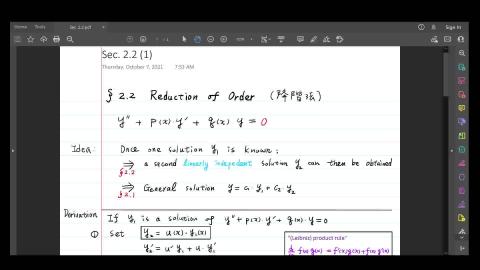 Home Tools Sec. 2.2.pdf Sign In
Sec. 2.2 (1)
Thursday, October 7, 2021 7:53 AM
§ 2.2 Reduction of Order (降階法)
y'' + p(x)·y' + q(x) y = 0
Idea: Once one solution y₁ is known,
⇒ a second linearly indepedent solution y₂ can then be obtained
§2.2
⇒ General solution y = c₁ y₁ + c₂ y₂
§2.1
Derivation If y₁ is a solution of y'' + p(x)·y' + q(x) y = 0
① set y₂ = u(x)·y₁(x)
y₂' = u' y₁ + u·y₁'
"(Leibniz) product rule"
d/dx f(x) g(x) = f'(x) g(x) + f(x) g'(x)